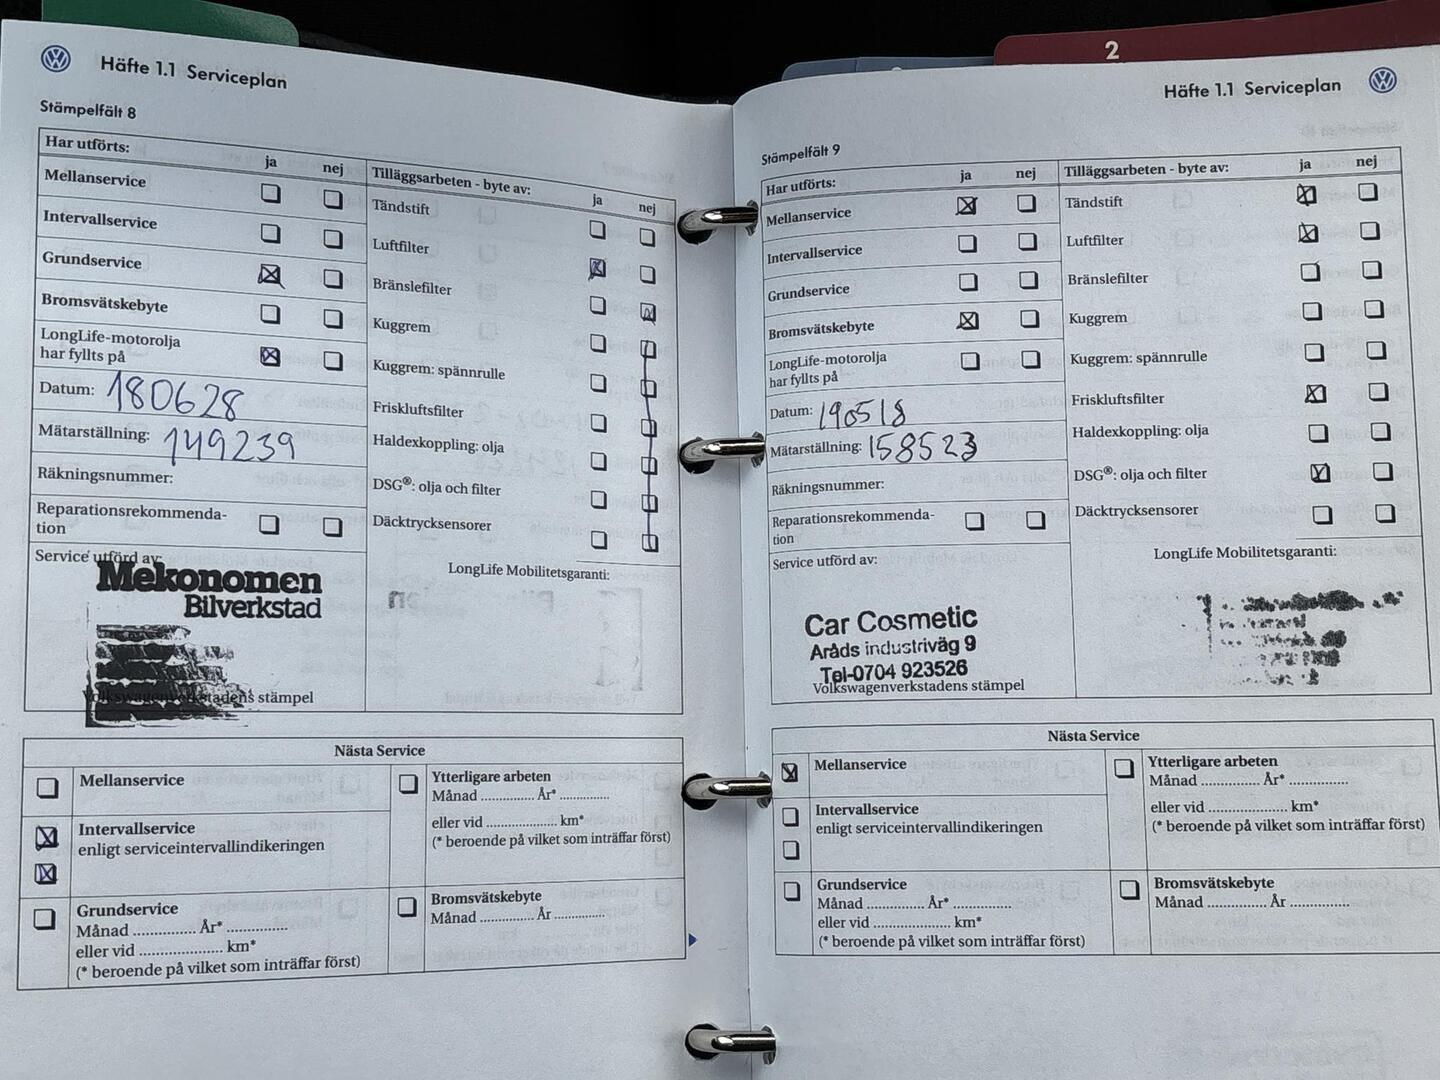 Häfte 1.1 Serviceplan
Stämpelfält 8
Har utförts:
ja nej
Mellanservice
Intervallservice
Grundservice
Bromsvätskebyte
LongLife-motorolja
har fyllts på
Datum: 180628
Mätarställning: 149239
Räkningsnummer:
Reparationsrekommenda-
tion
Service utförd av:
Mekonomen
Bilverkstad
Volkswagenverkstadens stämpel
Tilläggsarbeten - byte av:
ja nej
Tändstift
Luftfilter
Bränslefilter
Kuggrem
Kuggrem: spännrulle
Friskluftsfilter
Haldexkoppling: olja
DSG®: olja och filter
Däcktrycksensorer
LongLife Mobilitetsgaranti:
Nästa Service
Mellanservice
Intervallservice
enligt serviceintervallindikeringen
Grundservice
Månad .............. År* .............
eller vid .................. km*
(* beroende på vilket som inträffar först)
Ytterligare arbeten
Månad .............. År* .............
eller vid .................... km*
(* beroende på vilket som inträffar först)
Bromsvätskebyte
Månad .............. År ..............
2
Häfte 1.1 Serviceplan
Stämpelfält 9
Har utförts:
ja nej
Mellanservice
Intervallservice
Grundservice
Bromsvätskebyte
LongLife-motorolja
har fyllts på
Datum: 190518
Mätarställning: 158523
Räkningsnummer:
Reparationsrekommenda-
tion
Service utförd av:
Car Cosmetic
Aråds industriväg 9
Tel-0704 923526
Volkswagenverkstadens stämpel
Tilläggsarbeten - byte av:
ja nej
Tändstift
Luftfilter
Bränslefilter
Kuggrem
Kuggrem: spännrulle
Friskluftsfilter
Haldexkoppling: olja
DSG®: olja och filter
Däcktrycksensorer
LongLife Mobilitetsgaranti:
Nästa Service
Mellanservice
Intervallservice
enligt serviceintervallindikeringen
Grundservice
Månad .............. År* .............
eller vid .................. km*
(* beroende på vilket som inträffar först)
Ytterligare arbeten
Månad .............. År* .............
eller vid .................... km*
(* beroende på vilket som inträffar först)
Bromsvätskebyte
Månad .............. År ..............